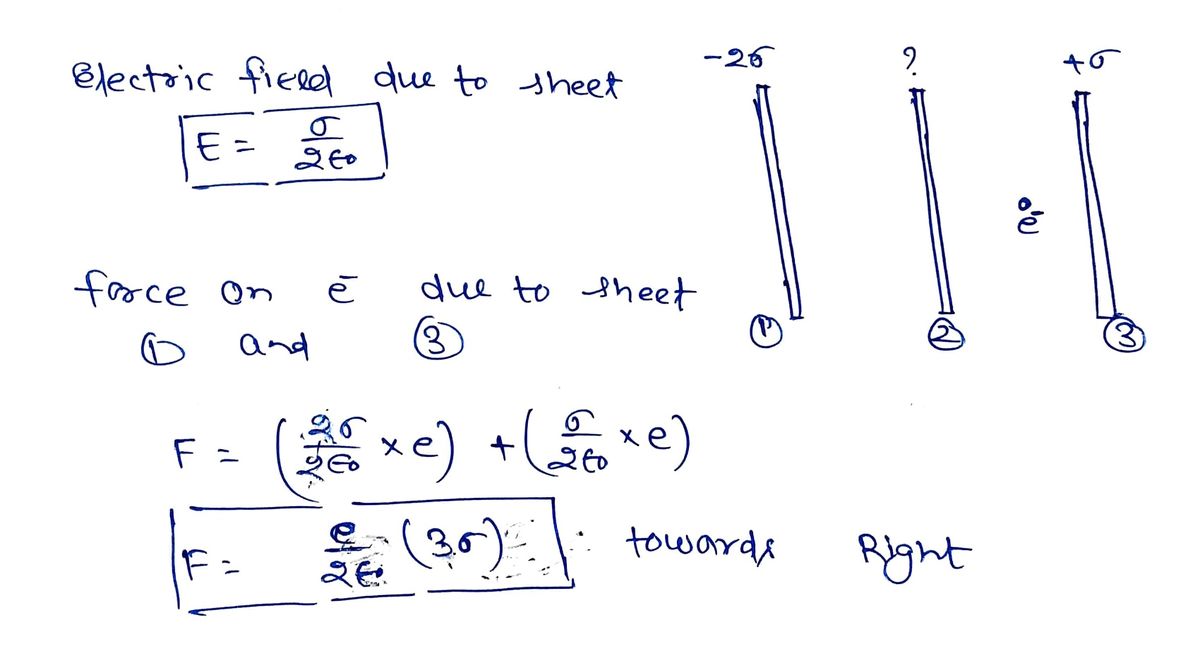 Electric field due to sheet
E = σ/2ϵ₀
-2σ ? +σ
e⁻
① ② ③
force on e⁻ due to sheet
① and ③
F = (2σ/2ϵ₀ × e) + (σ/2ϵ₀ × e)
F = e/2ϵ₀ (3σ) towards Right